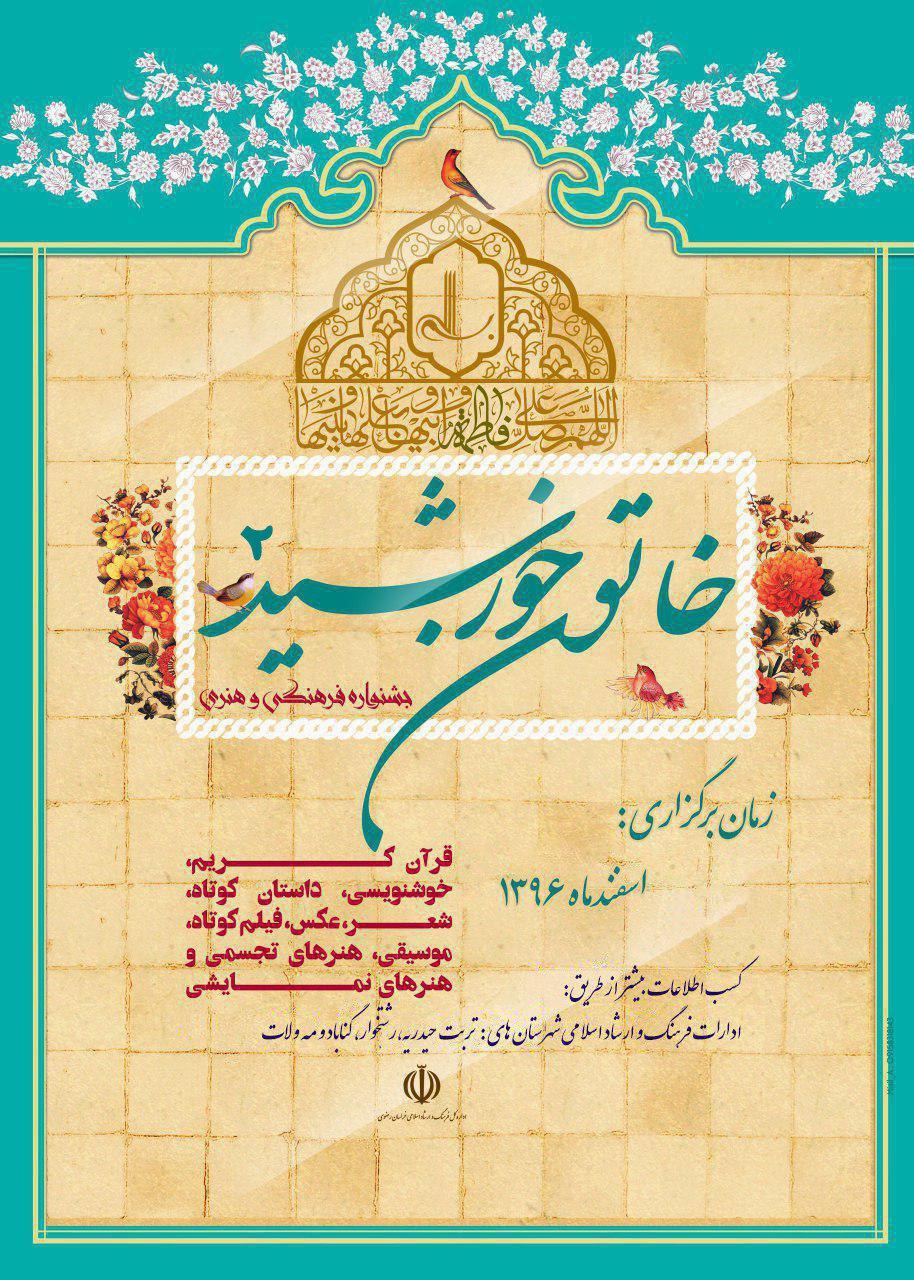 اللهم صل علی فاطمة و ابیها و بعلها و بنیها
خاتون خورشید ۲
جشنواره فرهنگی و هنری
زمان برگزاری:
اسفندماه ۱۳۹۶
قرآن کریم،
خوشنویسی، داستان کوتاه،
شعر، عکس، فیلم کوتاه،
موسیقی، هنرهای تجسمی و
هنرهای نمایشی
کسب اطلاعات بیشتر از طریق:
ادارات فرهنگ و ارشاد اسلامی شهرستان های: تربت حیدریه، رشتخوار، گناباد و مه ولات
اداره کل فرهنگ و ارشاد اسلامی خراسان رضوی